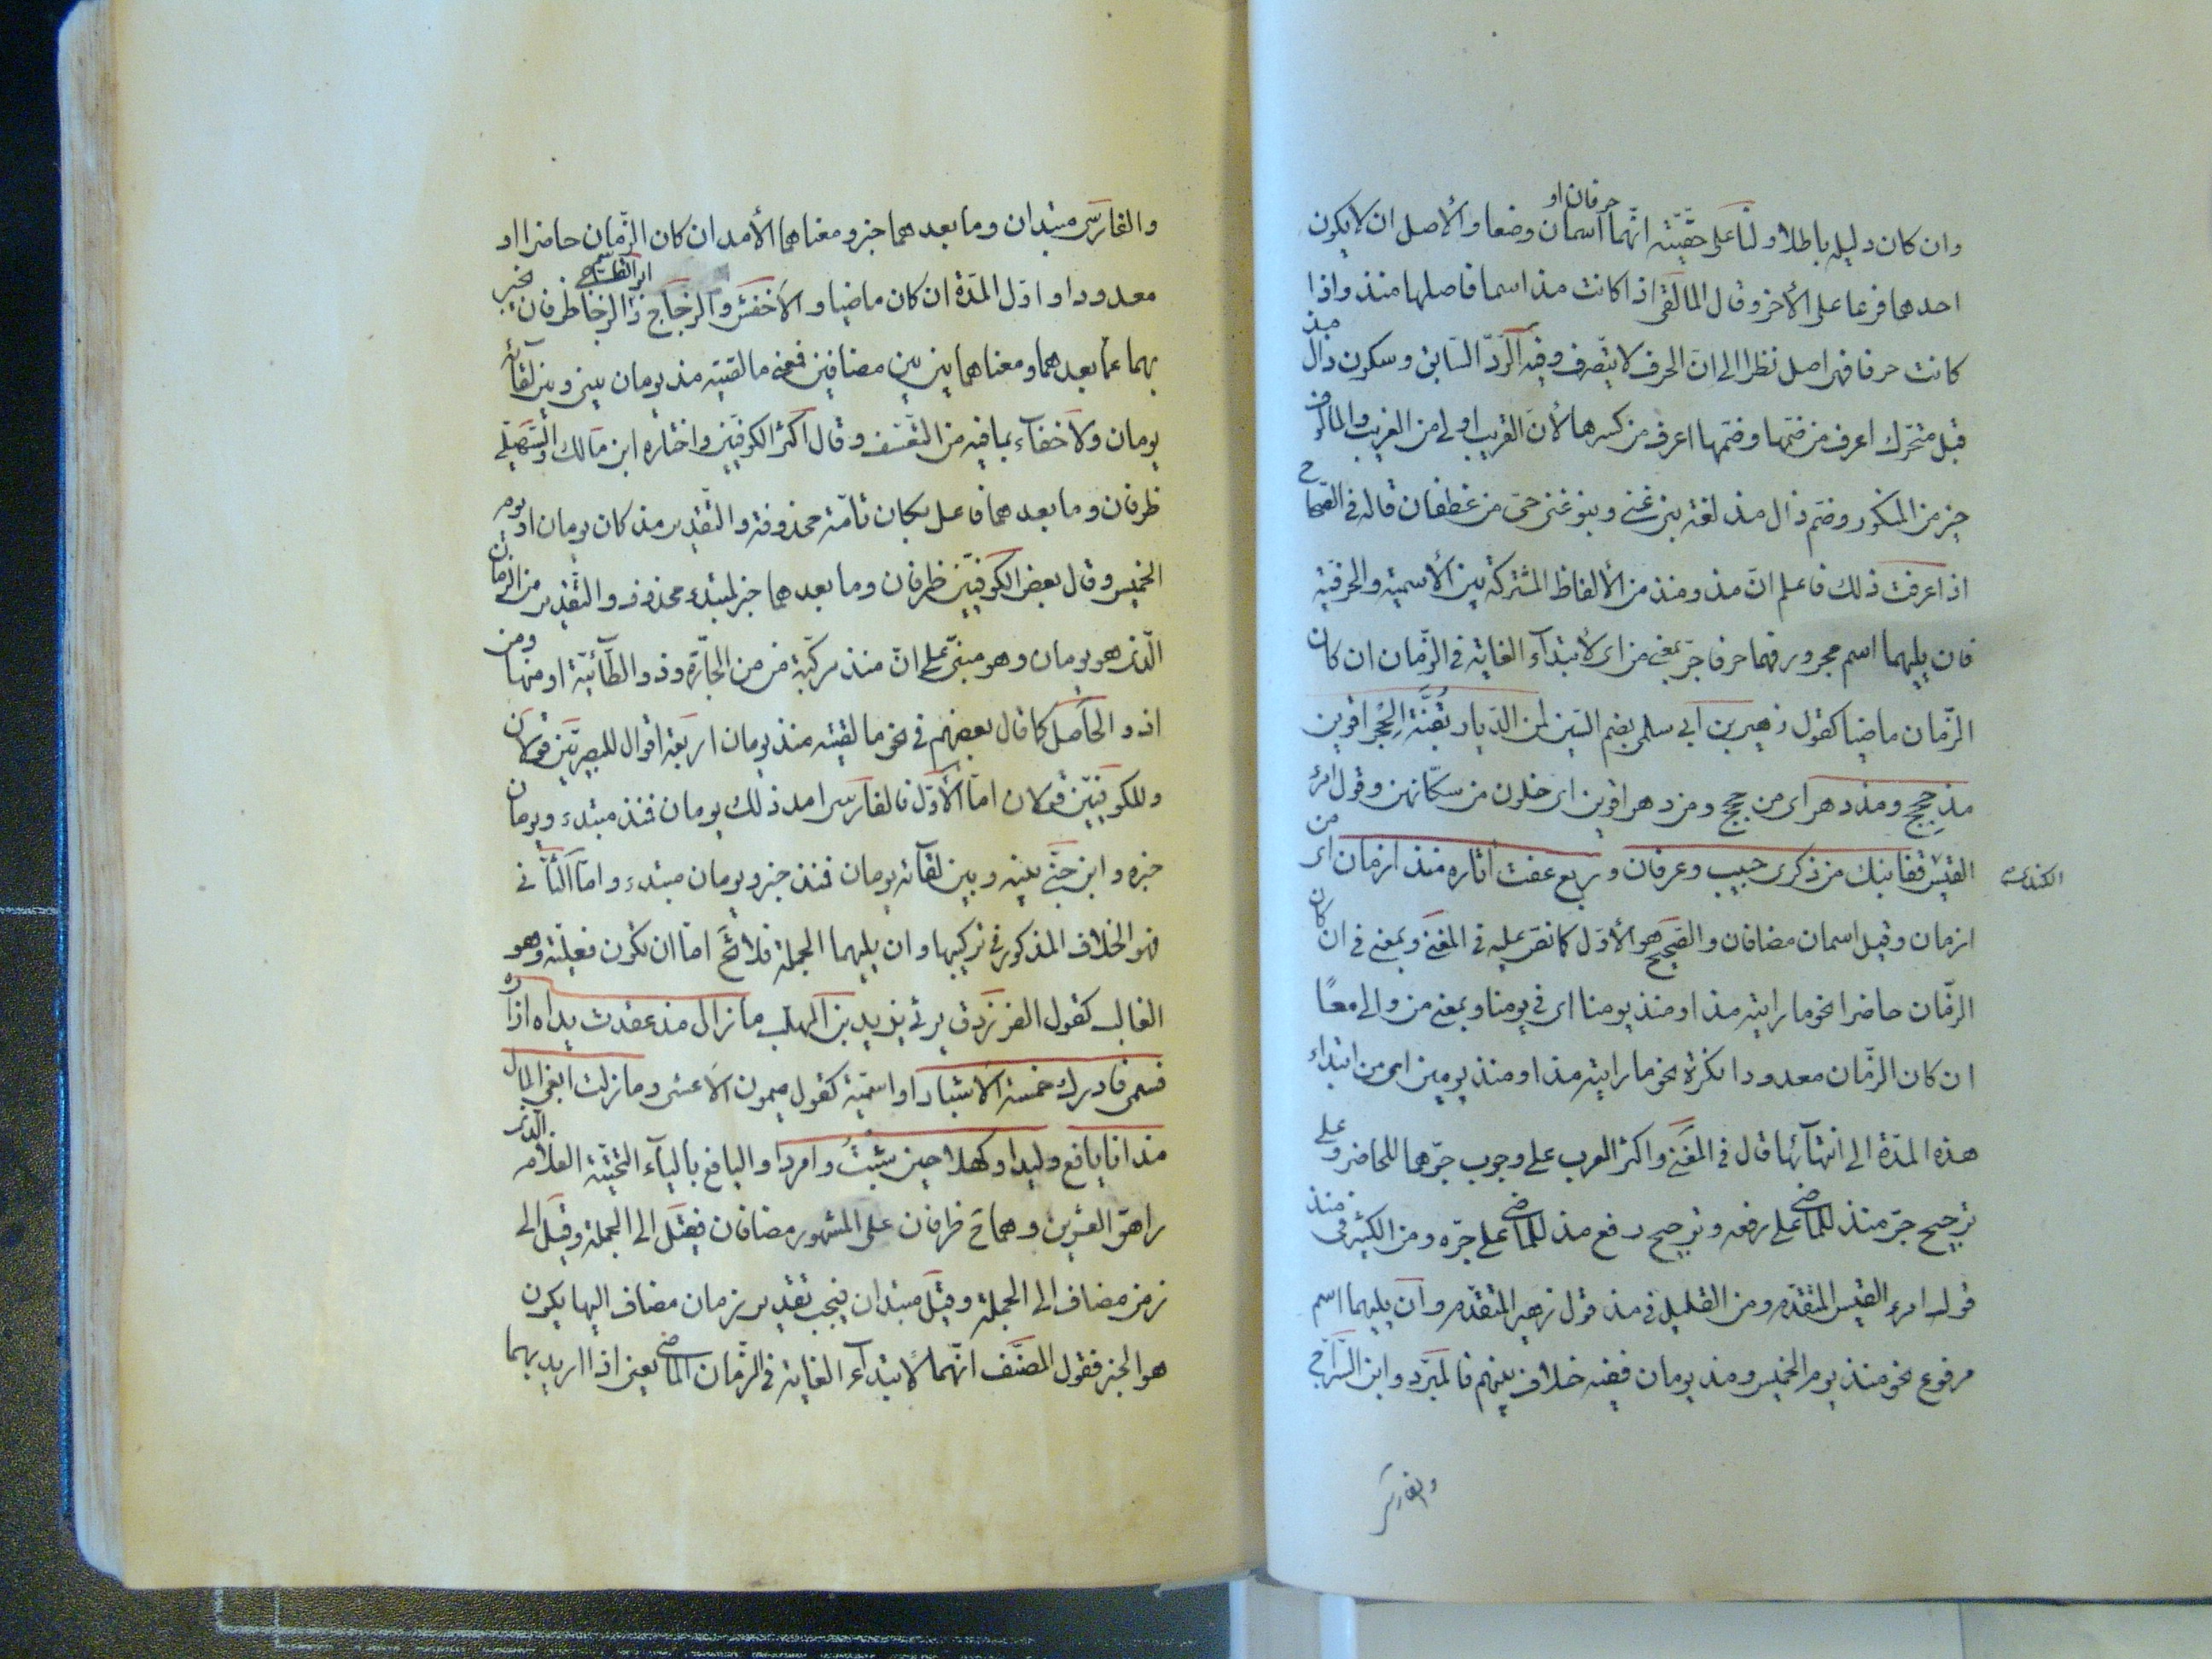 حرفان او
وان كان دليله باطلا ولنا على حقّيّته انّهما اسمان وضعا والأصل ان لا يكون
احدهما فرعا على الأخر وقال المالقى اذا كانت مذ اسما فاصلها منذ واذا
كانت حرفا فهى اصل نظرا الى انّ الحرف لا يتّصرف وفيه الردّ السّابق وسكون ذال مذ
قبل متحرّك اعرف من ضمّها وضمّها اعرف من كسرها لأنّ القريب اولى من الغريب والمألوف
خير من المنكور وضمّ ذال مذ لغة بنى غنى وبنو غنى حىّ من غطفان قاله فى الصّحاح
اذا عرفت ذلك فاعلم انّ مذ ومنذ من الألفاظ المشتركة بين الأسمية والحرفيّة
فان يليهما اسم مجرور فهما حرفا جرّ بمعنى من اى لأبتدآء الغاية فى الزّمان ان كان
الزّمان ماضيا كقول زهير بن ابى سلمى بضم السّين لمن الدّيار بقُنَّةِ الحِجْرِ اقوين
مذ حجج ومذ دهر اى من حجج ومن دهر اقوين اى خلون من سكّانهن وقول امرء
القيس قفا نبك من ذكرى حبيب وعرفان وربع عفت اثاره منذ ازمان اى من
الكندى
ازمان وقيل اسمان مضافان والصّحيح هو الأوّل كما نصّ عليه فى المغنى وبمعنى فى ان كان
الزّمان حاضرا نحو ما رايته مذ او منذ يومنا اى فى يومنا وبمعنى من والى معًا
ان كان الزّمان معدودا نكرة نحو ما رايته مذ او منذ يومين اى من ابتداء
هذه المدّة الى انتهآئها قال فى المغنى واكثر العرب على وجوب جرّهما للحاضر وعلى
ترجيح جرّ منذ للماضى على رفعه وترجيح رفع مذ للماضى على جرّه ومن الكثير فى منذ
قول امرء القيس المتقدّم ومن القليل فى مذ قول زهير المتقدّم وان يليهما اسم
مرفوع نحو منذ يوم الخميس ومذ يومان ففيه خلاف بينهم فالمبرّد وابن السّرّاج
والفارسى
والفارسى مبتدان وما بعدهما خبر ومعناهما الأمد ان كان الزّمان حاضرا او
معدودا واوّل المدّة ان كان ماضيا والأخفش والزجّاج والزجّاجى ظرفان يخبر
بهما عمّا بعدهما ومعناهما بين بين مضافين فمعنى ما لقيته مذ يومان بينى وبين لقآئه
يومان ولا خفآء بما فيه من التعّسف وقال اكثر الكوفيّين واختاره ابن مالك والسّهيلى
ظرفان وما بعدهما فاعل بكان تامّة محذوفة والتّقدير مذ كان يومان او يوم
الخميس وقال بعض الكوفيّين ظرفان وما بعدهما خبر لمبتدء محذوف والتّقدير من الزّمان
الّذى هو يومان وهو مبنىّ على انّ منذ مركّبة من من الجارّة وذو الطآئيّة او منها ومن
اذ والحاصل كما قال بعضهم فى نحو ما لقيته منذ يومان اربعة اقوال للبصريّين قولان
وللكوفيّين قولان امّا الأوّل فالفارسى امد ذلك يومان فمنذ مبتدء ويومان
خبره وابن جنّى بينه وبين لقآئه يومان فمنذ خبر ويومان مبتدء وامّا الثّانى
فهو الخلاف المذكور فى تركيبها وان يليهما الجملة فلا تخ امّا ان تكون فعليّة وهو
الغالب كقول الفرزدق يرثى يزيد بن المهلب ما زال مذ عقدت يداه ازاره
فسمى فادرك خمسة الأشبار او اسميّة كقول ميمون الأعشى وما زلت ابغى المال
مذ انا يافع وليدا وكهلا حين شبتُ وامردا واليافع باليآء التحتيّة الغلام الّذى
راهق العشرين وهما ح ظرفان على المشهور مضافان فقيل الى الجملة وقيل الى
زمن مضاف الى الجملة وقيل مبتدان فيجب تقدير زمان مضاف اليها يكون
هو الخبر فقول المصنّف انّهما لأبتدآء الغاية فى الزّمان الماضى يعنى اذا اريد بهما